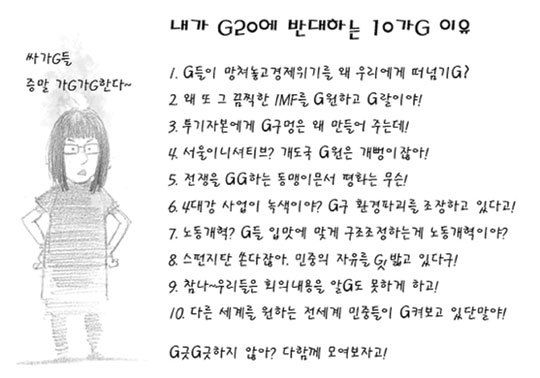 내가 G20에 반대하는 10가G 이유
싸가G들
증말 가G가G한다~
1. G들이 망쳐놓고경제위기를 왜 우리에게 떠넘기G?
2. 왜 또 그 끔찍한 IMF를 G원하고 G랄이야!
3. 투기자본에게 G구멍은 왜 만들어 주는데!
4. 서울이니셔티브? 개도국 G원은 개뻥이잖아!
5. 전쟁을 GG하는 동맹이문서 평화는 무슨!
6. 4대강 사업이 녹색이야? G구 환경파괴를 조장하고 있다고!
7. 노동개혁? G들 입맛에 맞게 구조조정하는게 노동개혁이야?
8. 스펀지탄 쏜다잖아. 민중의 자유를 G밟고 있다구!
9. 참나~우리들은 회의내용을 알G도 못하게 하고!
10. 다른 세계를 원하는 전세계 민중들이 G켜보고 있단말야!
G긋G긋하지 않아? 다함께 모여보자고!